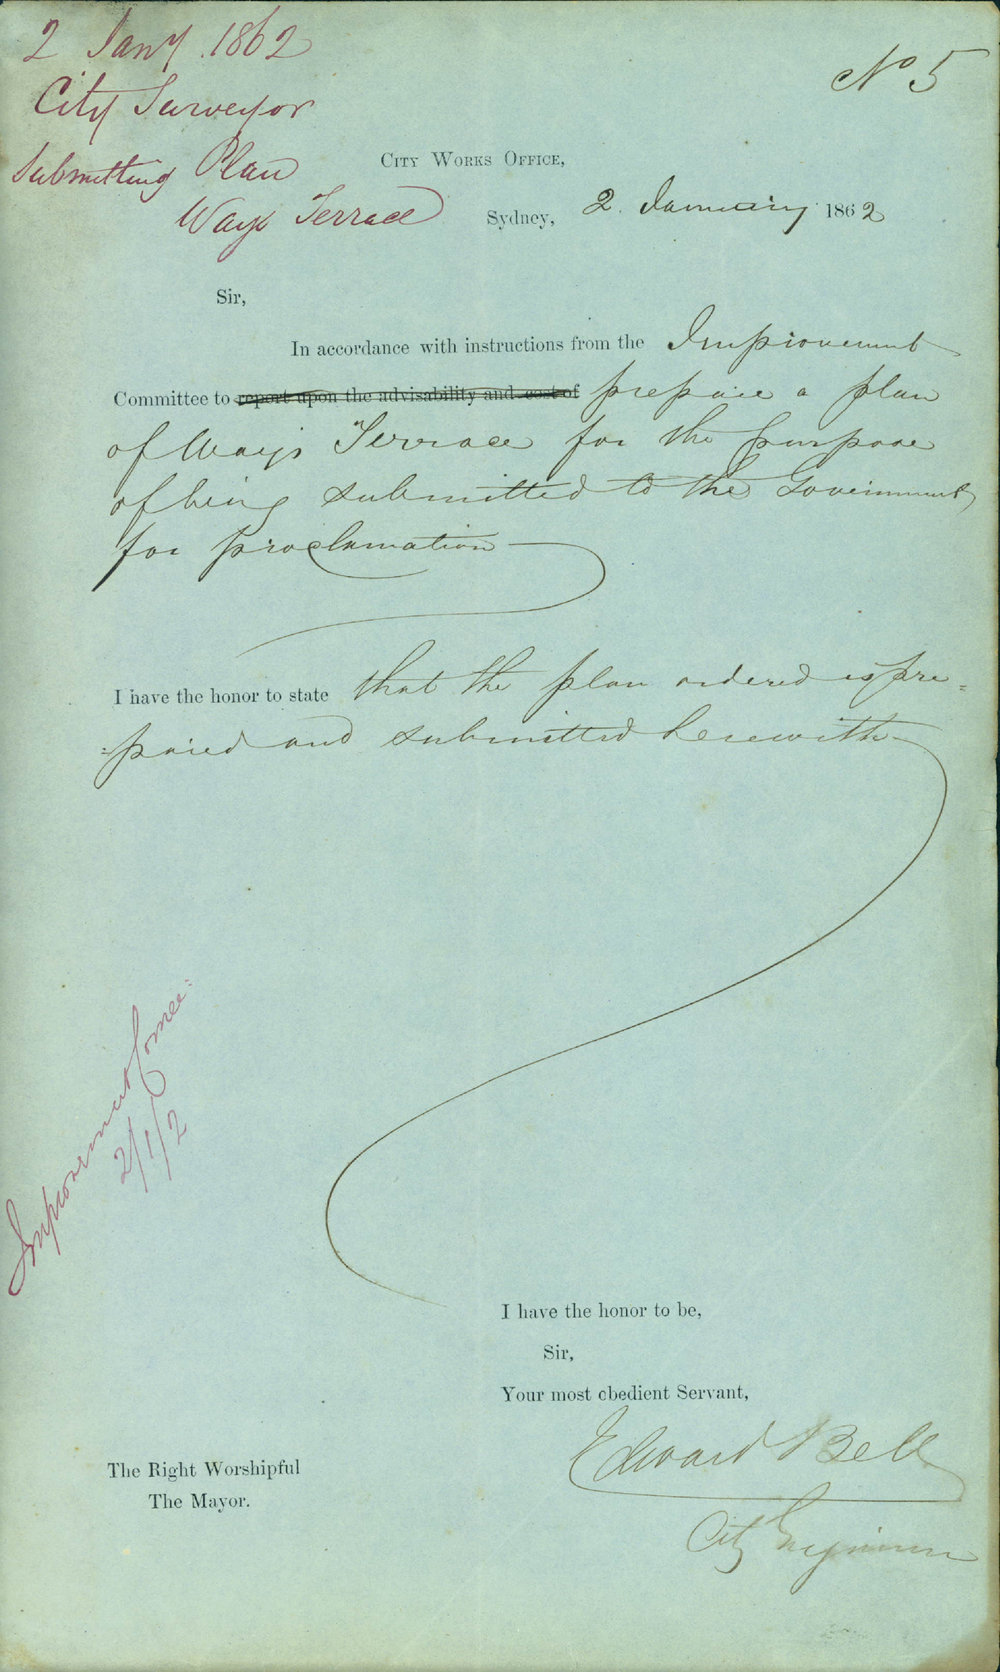 2 Jany. 1862
City Surveyor
Submitting Plan
Ways Terrace
No 5
City Works Office,
Sydney, 2. January 1862
Sir,
In accordance with instructions from the Improvement
Committee to report upon the advisability and cost of prepare a plan
of Ways Terrace for the purpose
of being submitted to the Government
for proclamation
I have the honor to state that the plan ordered is pre=
=pared and submitted herewith
Improvement Comee:
2/1/2
I have the honor to be,
Sir,
Your most obedient Servant,
Edward Bell
City Engineer
The Right Worshipful
The Mayor.